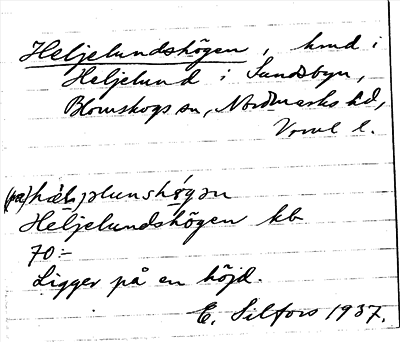 Heljelundshögen, hmd i
Heljelund i Sundsbyn,
Blomskogs sn, Nordmarks hd,
Vrml l.
(pa)
Heljelundshögen kb
70:-
Ligger på en höjd.
E. Silfors 1937.